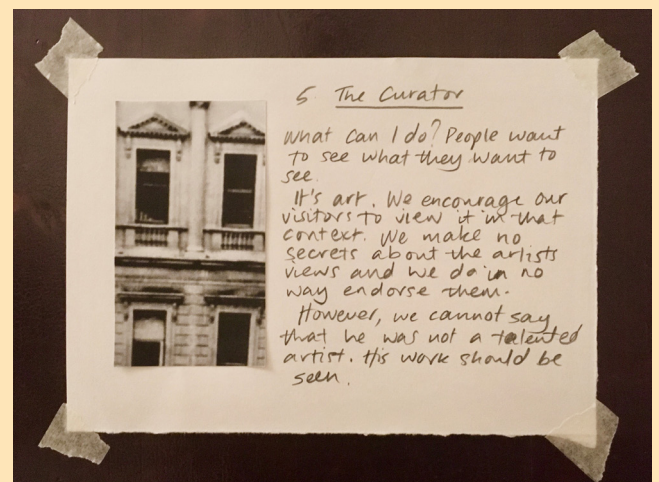 5 The Curator
What can I do? People want
to see what they want to
see.
It's art. We encourage our
visitors to view it in that
context. We make no
secrets about the artists
views and we do in no
way endorse them.
However, we cannot say
that he was not a talented
artist. His work should be
seen.